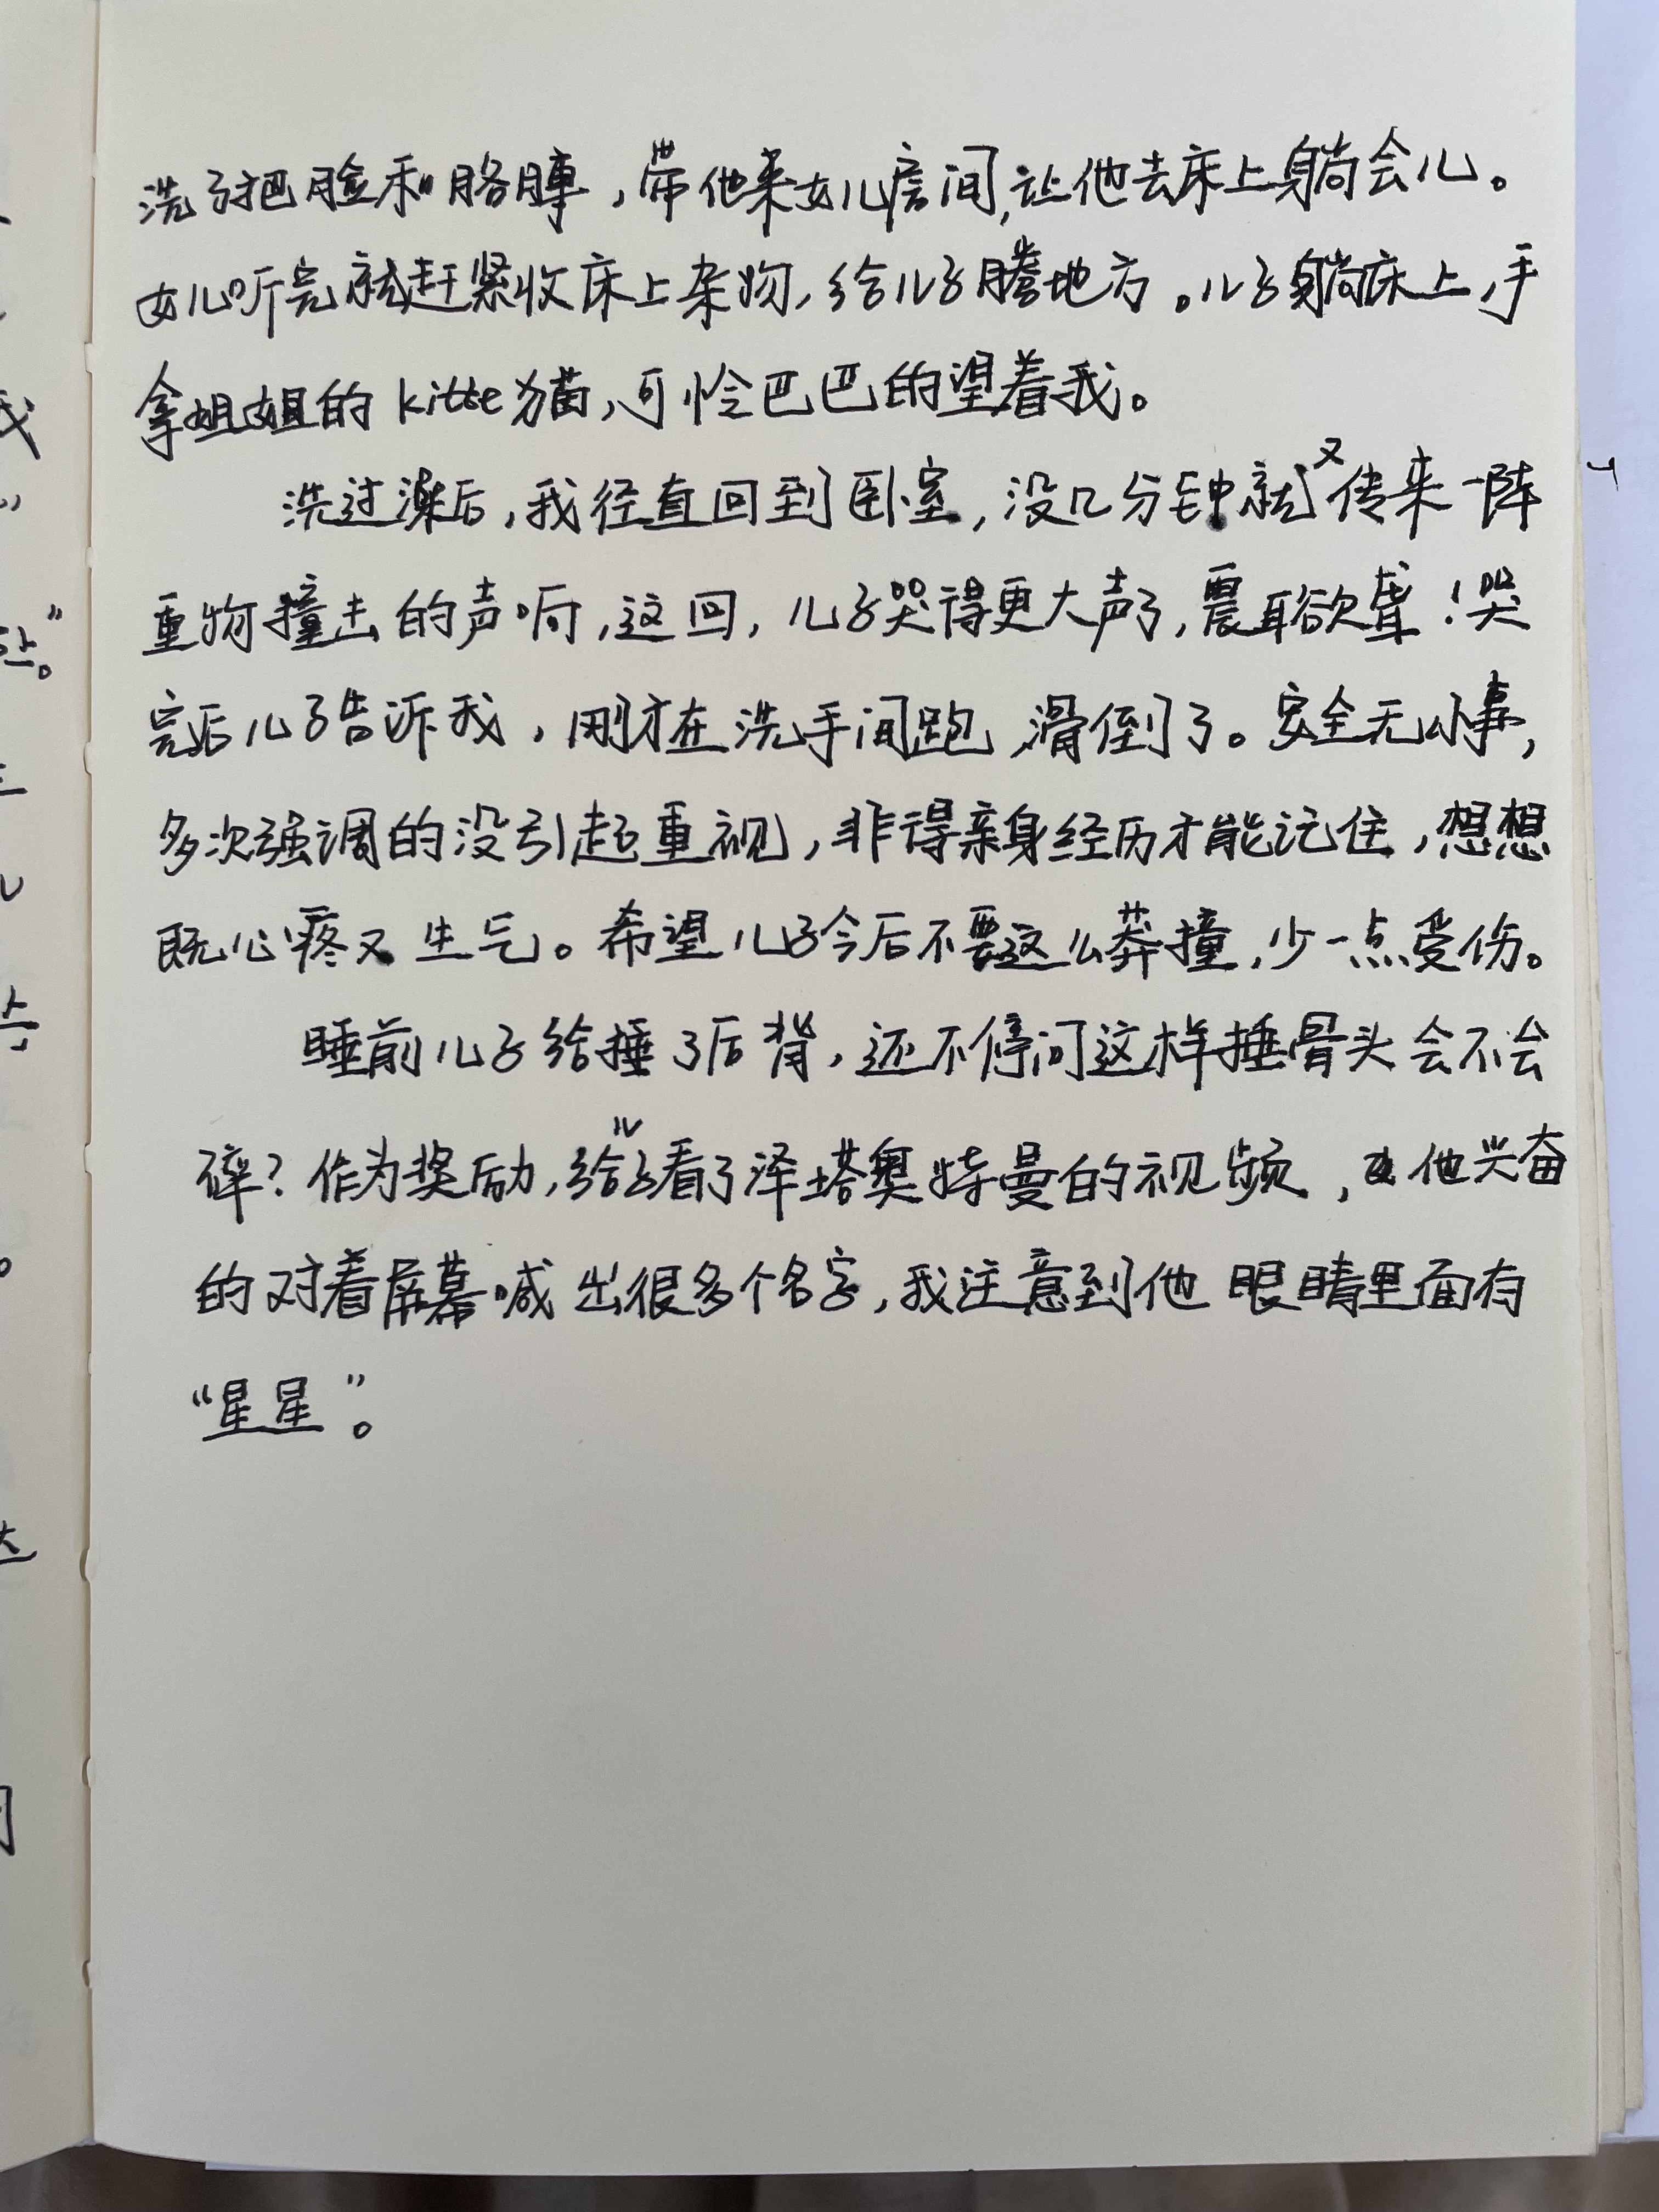 洗了把脸和胳膊，带他来女儿房间，让他去床上躺会儿。
女儿听完就赶紧收床上杂物，给儿子腾地方。儿子躺床上，手
拿姐姐的kitte猫，可怜巴巴的望着我。
洗过澡后，我径直回到卧室，没几分钟就又传来一阵
重物撞击的声响，这回，儿子哭得更大声了，震耳欲聋！哭
完后儿子告诉我，刚才在洗手间跑 滑倒了。安全无小事，
多次强调的没引起重视，非得亲身经历才能记住，想想
既心疼又生气。希望儿子今后不要这么莽撞，少一点受伤。
睡前儿子给捶了后背，还不停问这样捶骨头会不会
碎？作为奖励，给儿子看了泽塔奥特曼的视频，他兴奋
的对着屏幕喊出很多个名字，我注意到他眼睛里面有
“星星”。